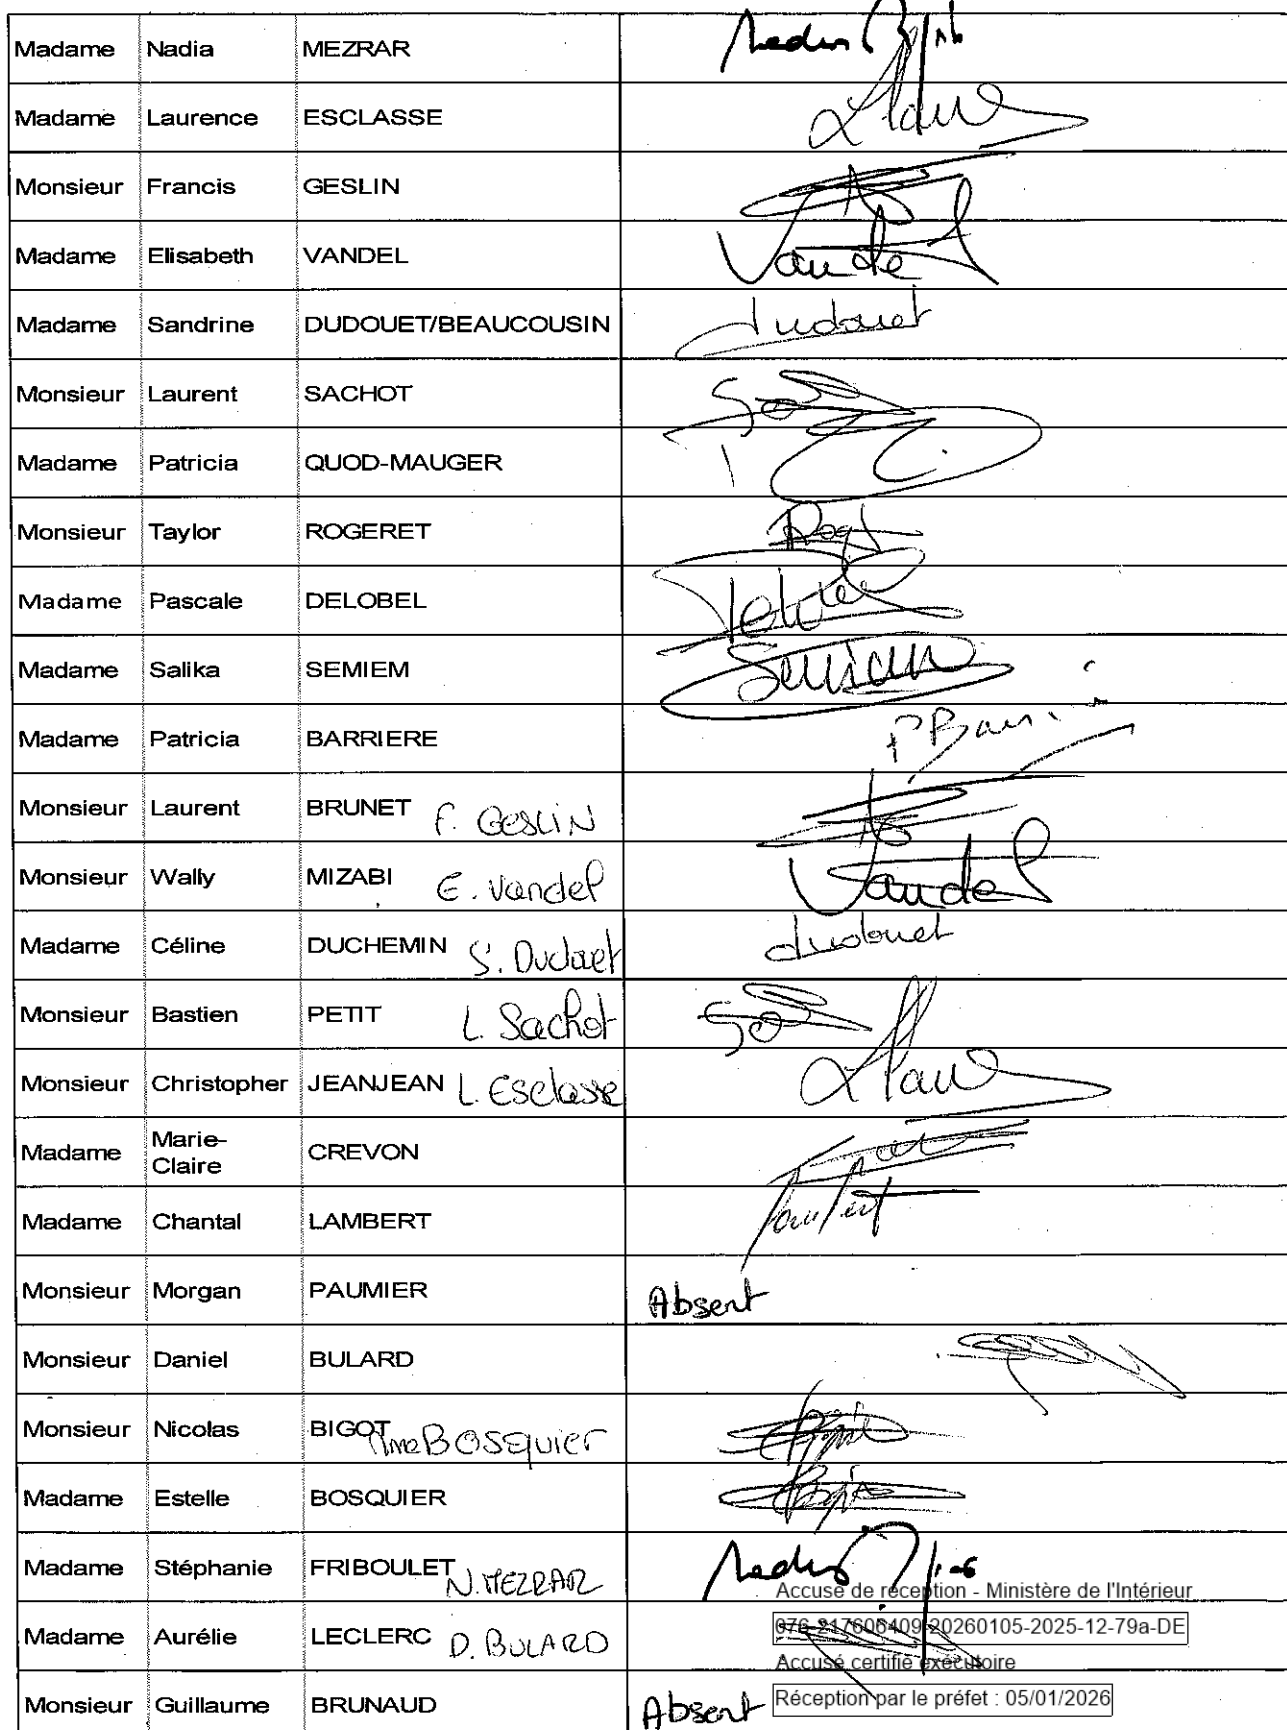 Madame Nadia MEZRAR
Madame Laurence ESCLASSE
Monsieur Francis GESLIN
Madame Elisabeth VANDEL Vandel
Madame Sandrine DUDOUET/BEAUCOUSIN dudouet
Monsieur Laurent SACHOT
Madame Patricia QUOD-MAUGER
Monsieur Taylor ROGERET
Madame Pascale DELOBEL
Madame Salika SEMIEM
Madame Patricia BARRIERE
Monsieur Laurent BRUNET F. GESLIN
Monsieur Wally MIZABI E. Vandel Vandel
Madame Céline DUCHEMIN S. Dudouet dudouet
Monsieur Bastien PETIT L. Sachot
Monsieur Christopher JEANJEAN L. Esclasse
Madame Marie-
Claire CREVON
Madame Chantal LAMBERT
Monsieur Morgan PAUMIER Absent
Monsieur Daniel BULARD
Monsieur Nicolas BIGOT Mme BOSQUIER
Madame Estelle BOSQUIER
Madame Stéphanie FRIBOULET N. MEZRAR
Accusé de réception - Ministère de l'Intérieur
Madame Aurélie LECLERC D. BULARD 076-217606409-20260105-2025-12-79a-DE
Accusé certifié exécutoire
Monsieur Guillaume BRUNAUD Absent Réception par le préfet : 05/01/2026